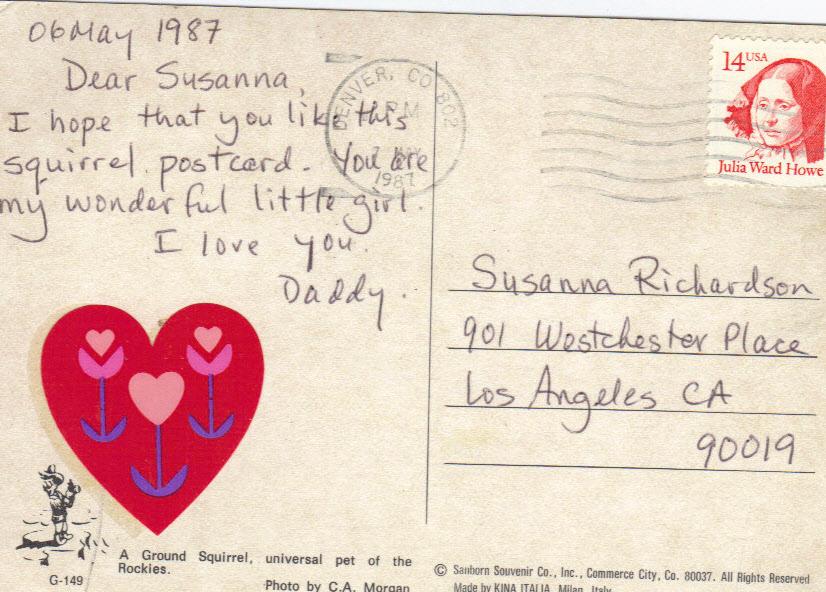 06 May 1987
Dear Susanna,
I hope that you like this
squirrel postcard. You are
my wonderful little girl.
I love you.
Daddy.
DENVER, CO 802
PM
7 MAY
1987
14 USA
Julia Ward Howe
Susanna Richardson
901 Westchester Place
Los Angeles CA
90019
G-149
A Ground Squirrel, universal pet of the
Rockies.
Photo by C.A. Morgan
© Sanborn Souvenir Co., Inc., Commerce City, Co. 80037. All Rights Reserved
Made by KINA ITALIA, Milan, Italy